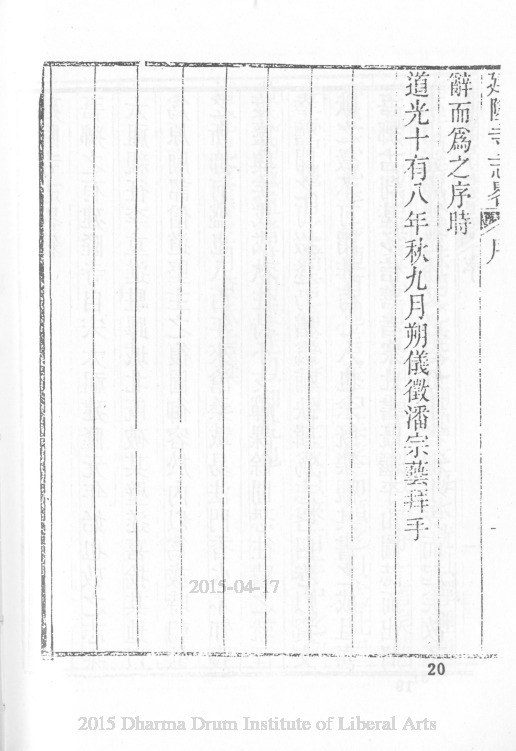 建隆寺志畧 序
辭而爲之序時
道光十有八年秋九月朔儀徵潘宗藝拜手
2015-04-17
20
2015 Dharma Drum Institute of Liberal Arts